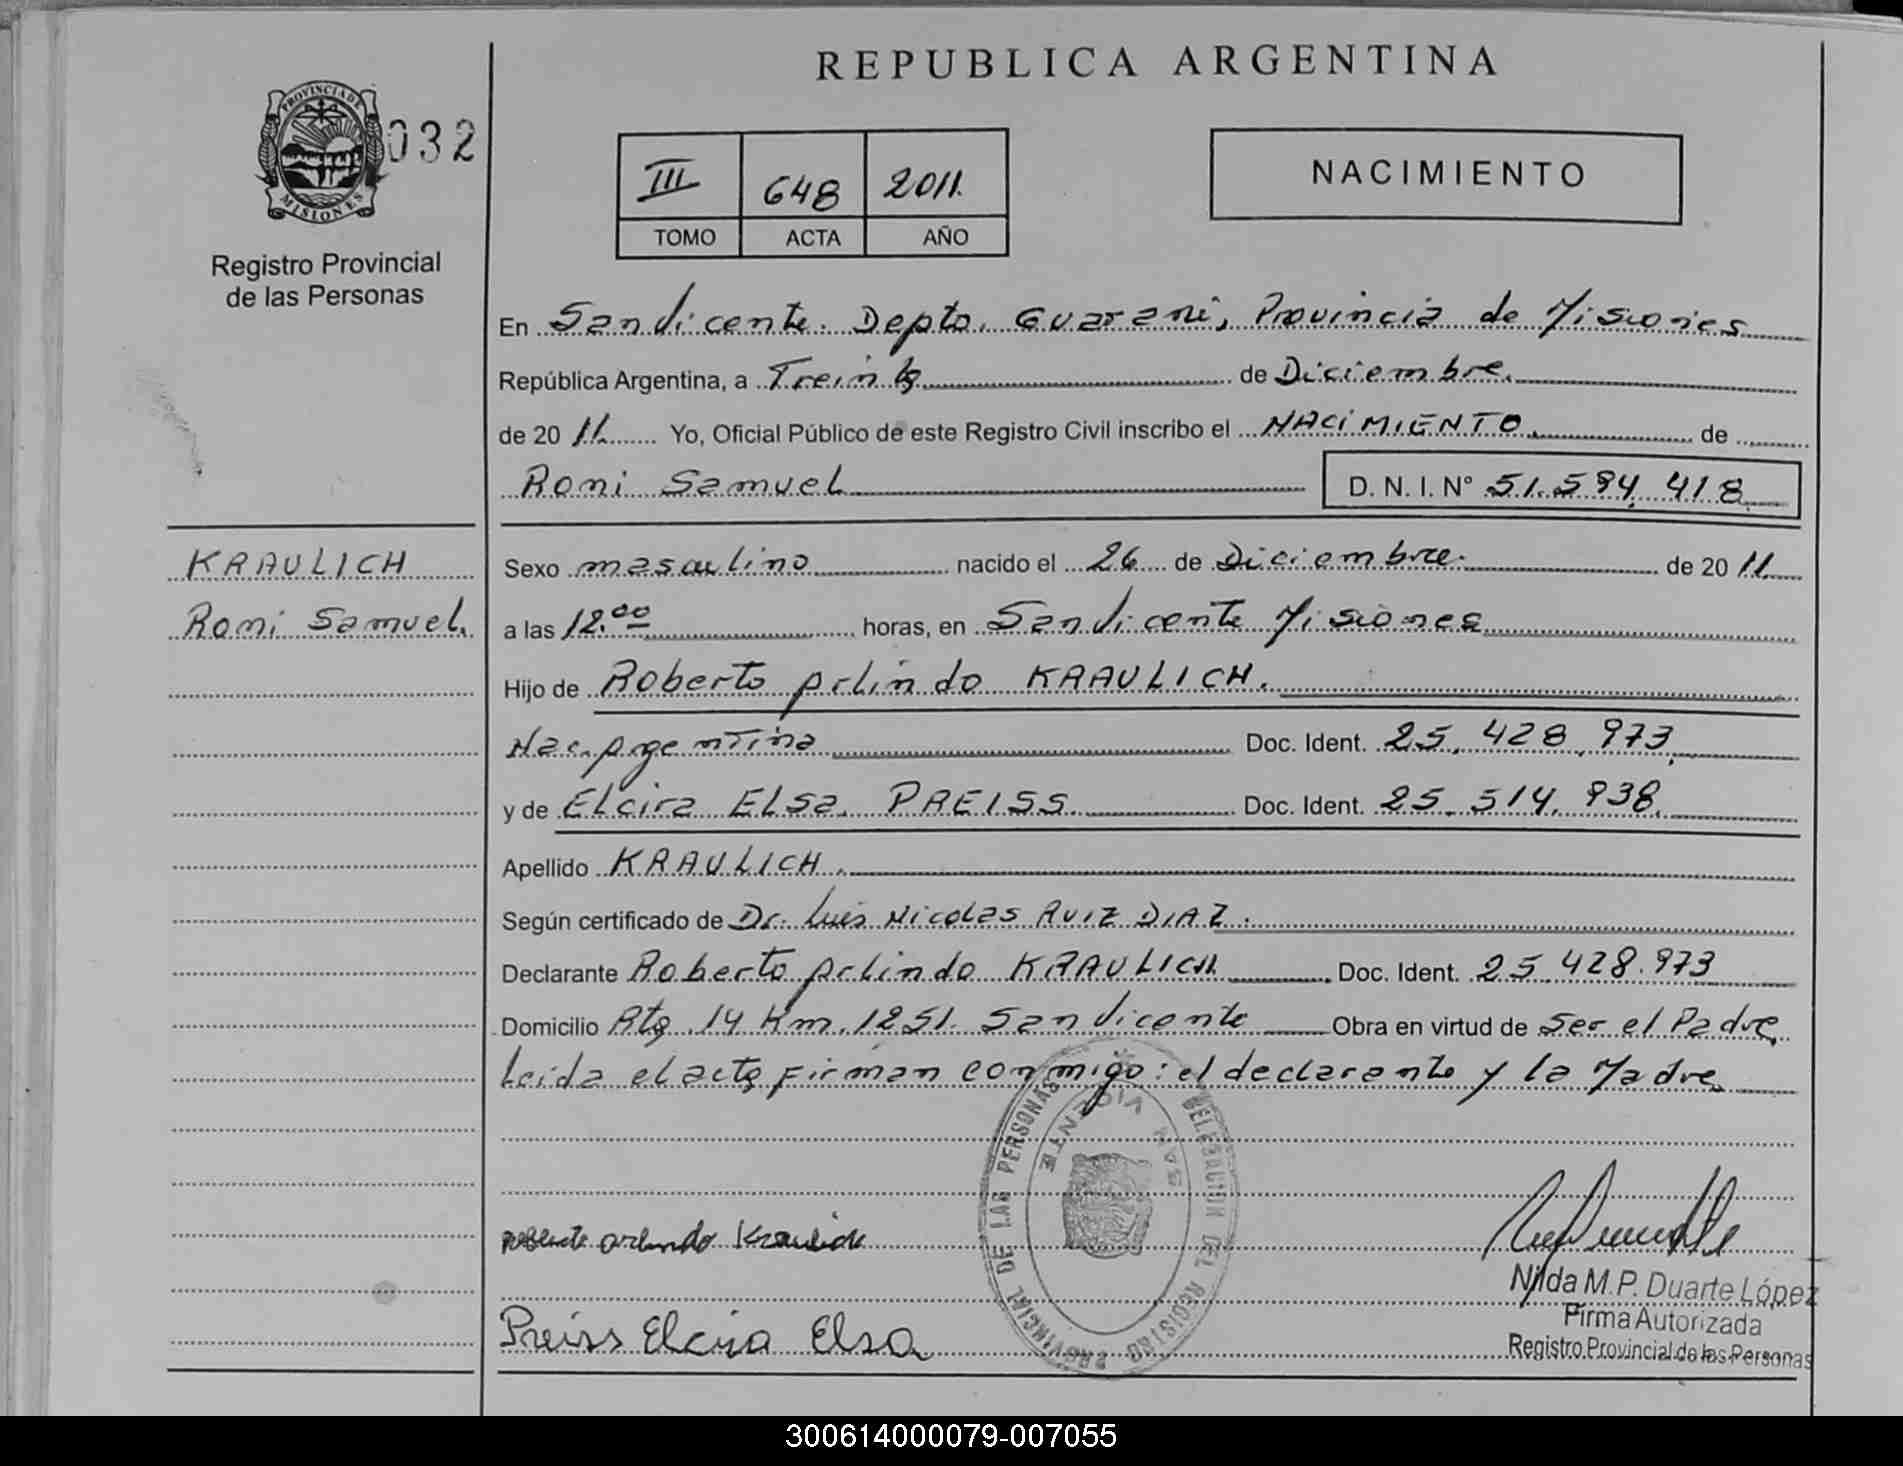 REPUBLICA ARGENTINA
PROVINCIA DE MISIONES
032
Registro Provincial
de las Personas
III 648 2011.
TOMO ACTA AÑO
NACIMIENTO
En San Vicente. Depto. Guarani, Provincia de Misiones
República Argentina, a Treinta de Diciembre.
de 20 11. Yo, Oficial Público de este Registro Civil inscribo el NACIMIENTO. de
Roni Samuel D. N. I. N° 51.594.418
KRAULICH
Roni Samuel.
Sexo masculino nacido el 26 de Diciembre. de 20 11.
a las 12.00 horas, en San Vicente Misiones
Hijo de Roberto Arlindo KRAULICH.
Nac. Argentina Doc. Ident. 25.428.973
y de Elcira Elsa PREISS. Doc. Ident. 25.514.938.
Apellido KRAULICH.
Según certificado de Dr. Luis Nicolas RUIZ DIAZ.
Declarante Roberto Arlindo KRAULICH Doc. Ident. 25.428.973
Domicilio Rta 14 Km. 1251. San Vicente Obra en virtud de Ser el Padre,
Leida el acta firman conmigo: el declarante y la Madre
DELEGACION DEL REGISTRO PROVINCIAL DE LAS PERSONAS
SAN VICENTE
roberto arlindo Kraulich
Preiss Elcira Elsa
Nilda M.P. Duarte López
Firma Autorizada
Registro Provincial de las Personas
300614000079-007055